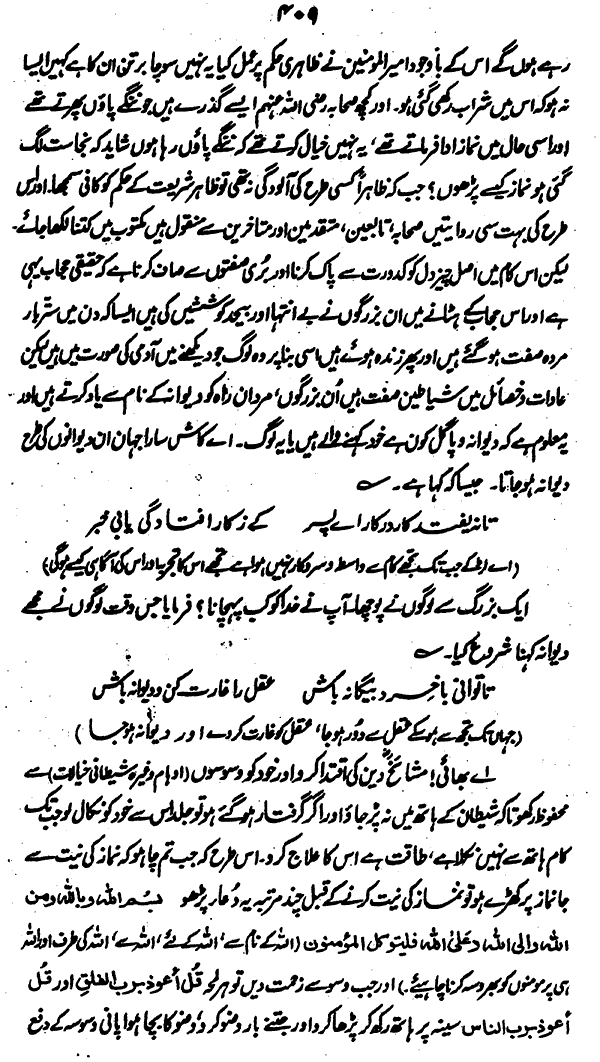 ۴۰۹
رہے ہوں گے اس کے باوجود امیر المومنین نے ظاہری حکم پر عمل کیا یہ نہیں سوچا برتن ان کا ہے کہیں ایسا
نہ ہو کہ اس میں شراب رکھی گئی ہو۔ اور کچھ صحابہ رضی اللہ عنہم ایسے گذرے ہیں جو ننگے پاؤں پھرتے تھے
اور اسی حال میں نماز ادا فرماتے تھے، یہ نہیں خیال کرتے تھے کہ ننگے پاؤں رہا ہوں شاید کہ نجاست لگ
گئی ہو نماز کیسے پڑھوں؟ جب کہ ظاہراً کسی طرح کی آلودگی نہ تھی تو ظاہر شریعت کے حکم کو کافی سمجھا۔ اور اس
طرح کی بہت سی روایتیں صحابہ، تابعین، متقدمین اور متاخرین سے منقول ہیں مکتوب میں کتنا لکھا جائے۔
لیکن اس کام میں اصل چیز دل کو کدورت سے پاک کرنا اور بُری صفتوں سے صاف کرنا ہے کہ حقیقی حجاب یہی
ہے اور اس حجاب کے ہٹانے میں ان بزرگوں نے بے انتہا اور بیحد کوششیں کی ہیں ایسا کہ دن میں ستّر بار
مردہ صفت ہو گئے ہیں اور پھر زندہ ہوئے ہیں اسی بنا پر وہ لوگ جو دیکھنے میں آدمی کی صورت میں ہیں لیکن
عادات و خصائل میں شیاطین صفت ہیں اُن بزرگوں، مردان راہ کو دیوانہ کے نام سے یاد کرتے ہیں اور
یہ معلوم ہے کہ دیوانہ و پاگل کون ہے خود کہنے والے ہیں یا یہ لوگ۔ اے کاش سارا جہان ان دیوانوں کی طرح
دیوانہ ہو جاتا۔ جیسا کہ کہا ہے۔ ؎
تا نہ یفتد کار در کار اے پسر کے ز کار افتادگی یابی خبر
(اے لڑکے جب تک تجھے کام سے واسطہ و سروکار نہیں ہوا ہے تجھے اس کا تجربہ اور اس کی آگاہی کیسے ہوگی)
ایک بزرگ سے لوگوں نے پوچھا۔ آپ نے خدا کو کب پہچانا؟ فرمایا جس وقت لوگوں نے مجھے
دیوانہ کہنا شروع کیا۔ ؎
تا توانی با خرد بیگانہ باش عقل را غارت کن و دیوانہ باش
(جہاں تک تجھ سے ہو سکے عقل سے دور ہو جا، عقل کو غارت کر دے اور دیوانہ ہو جا)
اے بھائی! مشائخ دین کی اقتدا کرو اور خود کو وسوسوں (اوہام وغیرہ شیطانی خیالات) سے
محفوظ رکھو تاکہ شیطان کے ہاتھ میں نہ پڑ جاؤ اور اگر گرفتار ہو گئے ہو تو جلد اس سے خود کو نکال لو جب تک
کام ہاتھ سے نہیں نکلا ہے، طاقت ہے اس کا علاج کر دو۔ اس طرح کہ جب تم چاہو کہ نماز کی نیت سے
جانماز پر کھڑے ہو تو نماز کی نیت کرنے کے قبل چند مرتبہ یہ دُعا پڑھو بسم اللہ وباللہ ومن
اللہ والی اللہ وعلیٰ اللہ فلیتوکل المؤمنون (اللہ کے نام سے، اللہ کے لئے، اللہ سے، اللہ کی طرف اور اللہ
ہی پر مومنوں کو بھروسہ کرنا چاہیئے۔) اور جب وسوسے زحمت دیں تو ہر لمحہ قُل أعوذ برب الفلق اور قُل
أعوذ برب الناس سینہ پر ہاتھ رکھ کر پڑھا کرو اور جتنے بار وضو کرو، وضو کا بچا ہوا پانی وسوسہ کے دفع